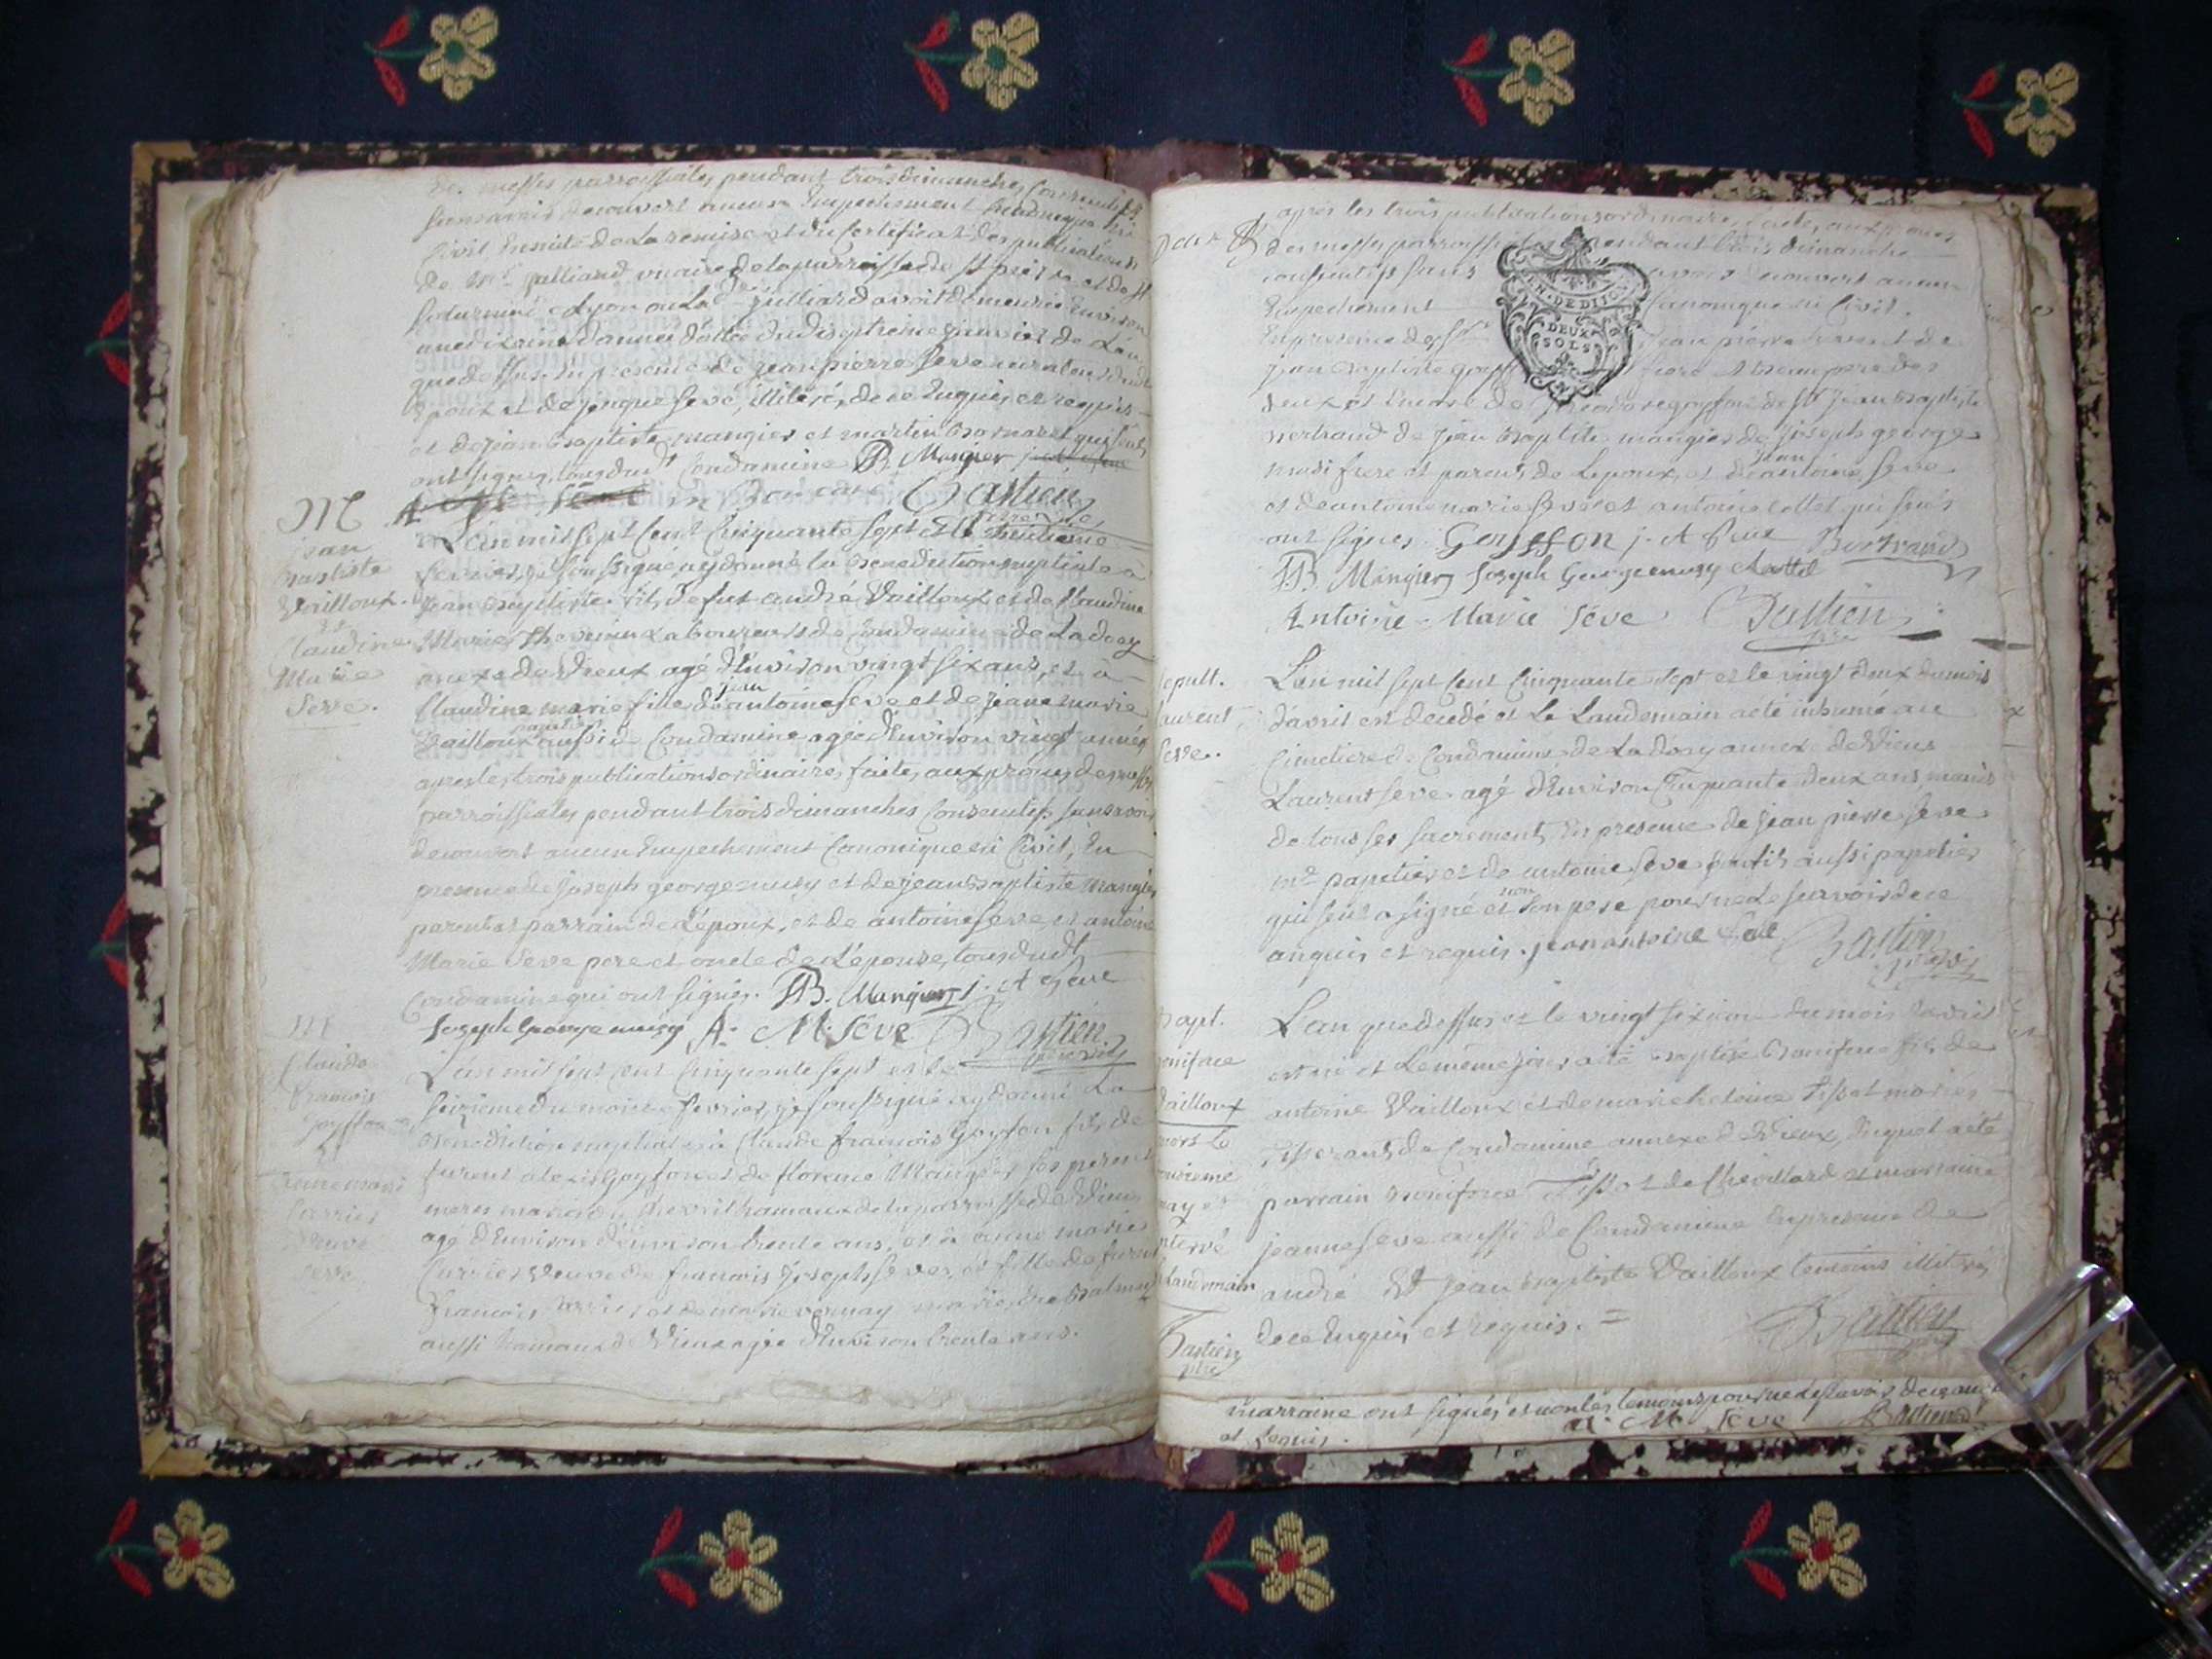 des messes parroissiales pendant trois dimanches consecutifs
sans avoir decouvert aucun Empechement Canonique ni
Civil Ensuite de la remise et du Certificat des publications
de Mre julliard vicaire de la parroisse de St pierre et de St
Saturnin a Lyon ou la julliard avoit demeurée Environ
une dixaine d'année datté du dixseptieme janvier de L'an
que dessus. En presence de jean pierre Seve
Epoux et de jonque Seve, illiteré, de ce Enquis et requis
et de jean Baptiste mangier et martin Bornaret qui seuls
ont signés, tous dudt Condamine JB. Mangier
Bastien
M
jean
Baptiste
Vailloux
et
Claudine
Marie
Seve.
L'an mil sept Cent Cinquante sept et le huitieme
fevrier, je soussigné ay donné la Benediction nuptiale à
jean Baptiste fils de fut andré Vailloux et de Claudine
Marie Thevenin Laboureurs de Condamine de La doey
annexe de Vieux agé d'Environ vingt six ans, et à
Claudine marie fille de jean antoine Seve et de jeane marie
Vailloux papetier aussi de Condamine agée d'Environ vingt années
apres les trois publications ordinaires faites aux prones des messes
parroissiales pendant trois dimanches Consecutifs sans avoir
decouvert aucun Empechement Canonique ni Civil, En
presence de Joseph george musy et de jean Baptiste Mangier
parent et parrain de L'epoux, et de antoine Seve, et antoine
Marie Seve pere et oncle de L'epouse, tous dudt
Condamine qui ont signés. JB. Mangier j. A Seve
Joseph George musy A. M. Sêve Bastien
M
Claude
francois
Goyffon
et
anne marie
Curries
veuve
Seve
L'an mil sept Cent Cinquante sept et le
seizieme du mois de fevrier, je soussigné ay donné La
Benediction nuptiale à Claude francois Goyfon fils de
furent alexis Goyfon et de florence Mangier ses pere et
mere mariés du Chevril hameaux de la parroisse de Vieux
agé d'Environ d'Environ trente ans, et à anne marie
Curries veuve de francois Joseph Seve, et fille de furent
francois Curries et de marie vernay mariés
aussi hameaux de Vieux agée d'Environ trente ans.
apres les trois publications ordinaires, faites aux prones
des messes parroissiales pendant trois dimanche
consecutifs sans avoir decouvert aucun
Empechement Canonique ni Civil.
En presence de Sr jean pierre
jean Baptiste goyffon frere et beaupere des
deux et Encore de theodore goyffon de Sr jean Baptiste
vertrand de jean Baptiste mangier de Joseph george
musi frere et parents de Lepoux, et de jean antoine Seve
et de antoine marie Seve et antoine Collet qui seuls
ont signés. Goyffon j. A Seve Bertrand
JB. Mangier Joseph George musy Collet
Antoine Marie Sêve Bastien
ptre
GEN. DE DIJON
DEUX
SOLS
sepult.
Laurent
Seve.
L'an mil sept Cent Cinquante sept et le vingt deux du mois
d'avril est decedé et Le Laudemain a eté inhumé au
Cimetiere de Condamine de La doey annexe de Vieux
Laurent Seve agé d'Environ Cinquante deux ans munis
de tous ses sacrements En presence de jean pierre Seve
me papetier et de antoine Seve son fils aussi papetier
qui seul a signé et non son pere pour ne Le scavoir de ce
anquis et requis. jean antoine Seve Bastien
Bapt.
Boniface
Vailloux
mors le
L'an que dessus et le vingt sixieme du mois d'avril
est né et Le meme jour a eté Baptisé Boniface fils de
antoine Vailloux et de marie heleine Tissot mariés
Tisserant de Condamine annexe de Vieux, duquel a eté
parrain Boniface Tissot de Chevillard et marraine
jeanne Seve aussi de Condamine En presence de
andré et jean Baptiste Vailloux temoins illiterés
de ce Enquis et requis. = Bastien
Laudemain
Bastien
ptre
marraine ont signés et non les temoins pour ne le scavoir de ce anquis
et requis. A. M. Seve Bastien